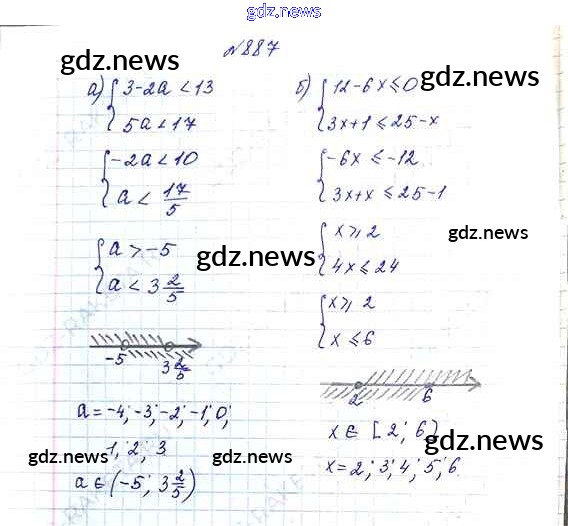 gdz.news
№887
gdz.news
а) { 3-2a < 13
5a < 17
{ -2a < 10
a < 17/5
{ a > -5
a < 3 2/5
gdz.news
-5 3 2/5
a = -4; -3; -2; -1; 0;
1; 2; 3
gdz.news gdz.news
a ∈ (-5; 3 2/5)
б) { 12-6x ≤ 0
gdz.news
3x+1 ≤ 25-x
{ -6x ≤ -12
3x+x ≤ 25-1
{ x ≥ 2
gdz.news
4x ≤ 24
{ x ≥ 2
x ≤ 6
2 6
x ∈ [2; 6)
gdz.news
x = 2; 3; 4; 5; 6.